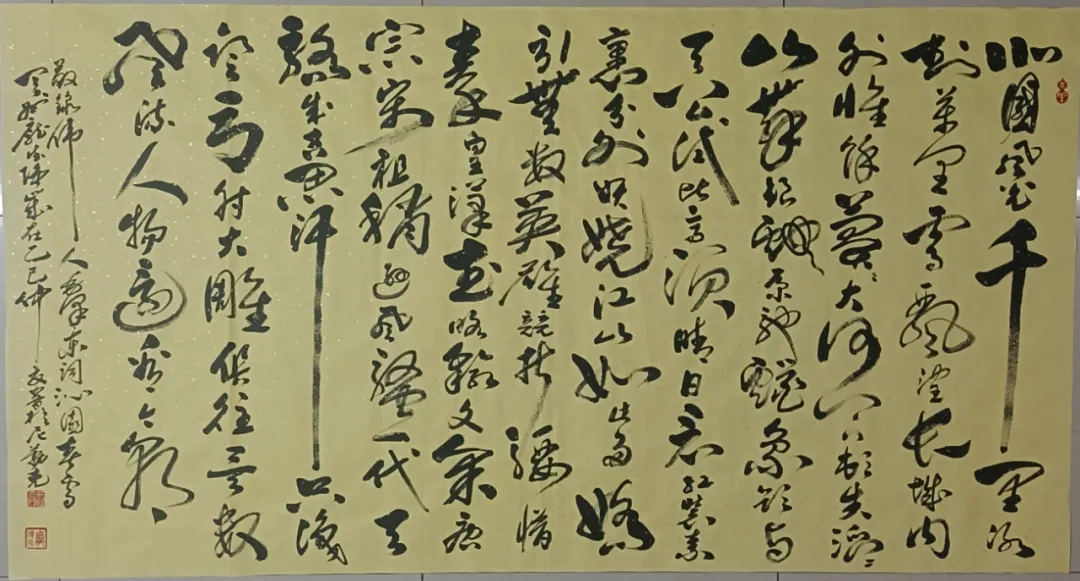 北國風光千里冰
封萬里雪飄望長城內
外惟餘莽莽大河上下頓失滔滔
山舞銀蛇原馳蠟象欲與
天公試比高須晴日看紅裝素
裹分外妖嬈江山如此多嬌
引無數英雄競折腰惜
秦皇漢武略輸文采唐
宗宋祖稍遜風騷一代天
驕成吉思汗只識
彎弓射大雕俱往矣數
風流人物還看今朝
敬錄偉人毛澤東詞沁園春雪
歲在乙巳仲夏書於